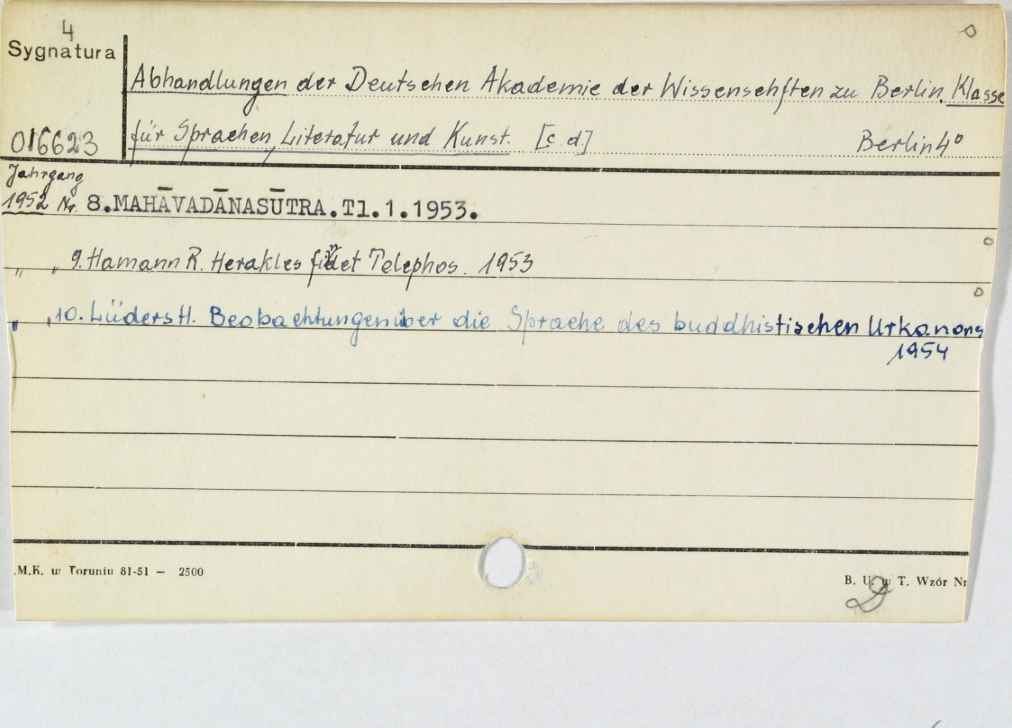 4
Sygnatura
Abhandlungen der Deutschen Akademie der Wissensehften zu Berlin. Klasse
016623
für Sprachen, Literatur und Kunst. [c d] Berlin 4°
Jahrgang
1952 Nr. 8.MAHĀVADĀNASŪTRA.Tl.1.1953.
" " 9. Hamann R. Herakles findet Telephos. 1953
" " 10. Lüders H. Beobachtungen über die Sprache des buddhistischen Urkanons
1954
.M.K. w Toruniu 81-51 — 2500
B. U. w T. Wzór Nr